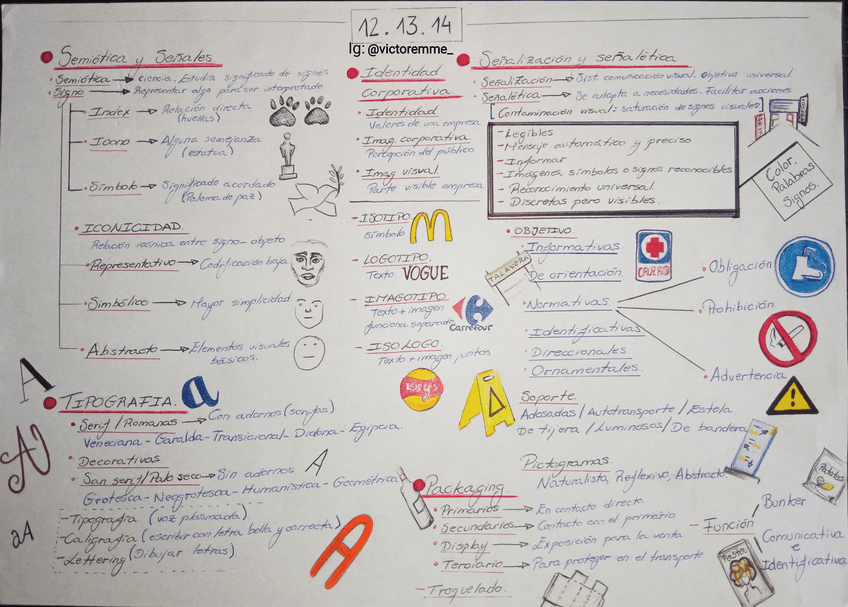 12.13.14
Ig: @victoremme_
Semiótica y Señales
Semiótica → ciencia. Estudia significado de signos
Signo → Representar algo para ser interpretado
Index → Relación directa
(huellas)
Icono → Alguna semejanza
(estatua)
Símbolo → Significado acordado
(Paloma de paz)
ICONICIDAD.
Relación icónica entre signo-objeto
Representativo → Codificación baja
Simbólico → Mayor simplicidad
Abstracto → Elementos visuales
básicos.
TIPOGRAFIA.
A
a
Serif/Romanas → Con adornos (serifas)
Veneciana - Garalda - Transicional - Didona - Egipcia.
Decorativas.
San serif/Palo seco → Sin adornos.
A
Grotesca - Neogrotesca - Humanística - Geométrica
- Tipografía (voz plasmada)
- Caligrafía (escribir con letra bella y correcta)
- Lettering (Dibujar letras)
A
Identidad
Corporativa.
Identidad
Valores de una empresa
Imag. corporativa.
Percepción del público
Imag. visual.
Parte visible empresa
- ISOTIPO
Símbolo
- LOGOTIPO.
Texto VOGUE
- IMAGOTIPO.
Texto + imagen
funciona separado
Carrefour
- ISOLOGO.
Texto + imagen juntos
Señalización y señalética
Señalización → Sist. comunicación visual. Objetivo universal
Señalética → Se adapta a necesidades. Facilitar acciones
[Contaminación visual: saturación de signos visuales]
- Legibles
- Mensaje automático y preciso
- Informar
- Imágenes, símbolos o signos reconocibles
- Reconocimiento universal.
- Discretos pero visibles.
Color.
Palabras
Signos.
OBJETIVO.
Informativas
CRUZ ROJA
TALAVERA
De orientación.
Normativas
Obligación
Prohibición
Advertencia
Identificativas
Direccionales
Ornamentales.
Soporte.
Adosadas / Autotransporte / Estela
De tijera / Luminosos / De bandera
Pictogramas
Naturalista, Reflexivo, Abstracto.
Packaging
Primarios → En contacto directo
Secundarios → Contacto con el primario
Display → Exposición para la venta
Terciario → Para proteger en el transporte
- Troquelado.
- Función
Bunker
Comunicativa
e
Identificativa
Patatas
Pasta